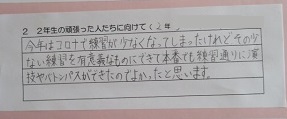 2 2年生の頑張った人たちに向けて(2年
今年はコロナで練習が少なくなってしまったけれどその少
ない練習を有意義なものにできて本番でも練習通りに演
技やバトンパスができたのでよかったと思います。